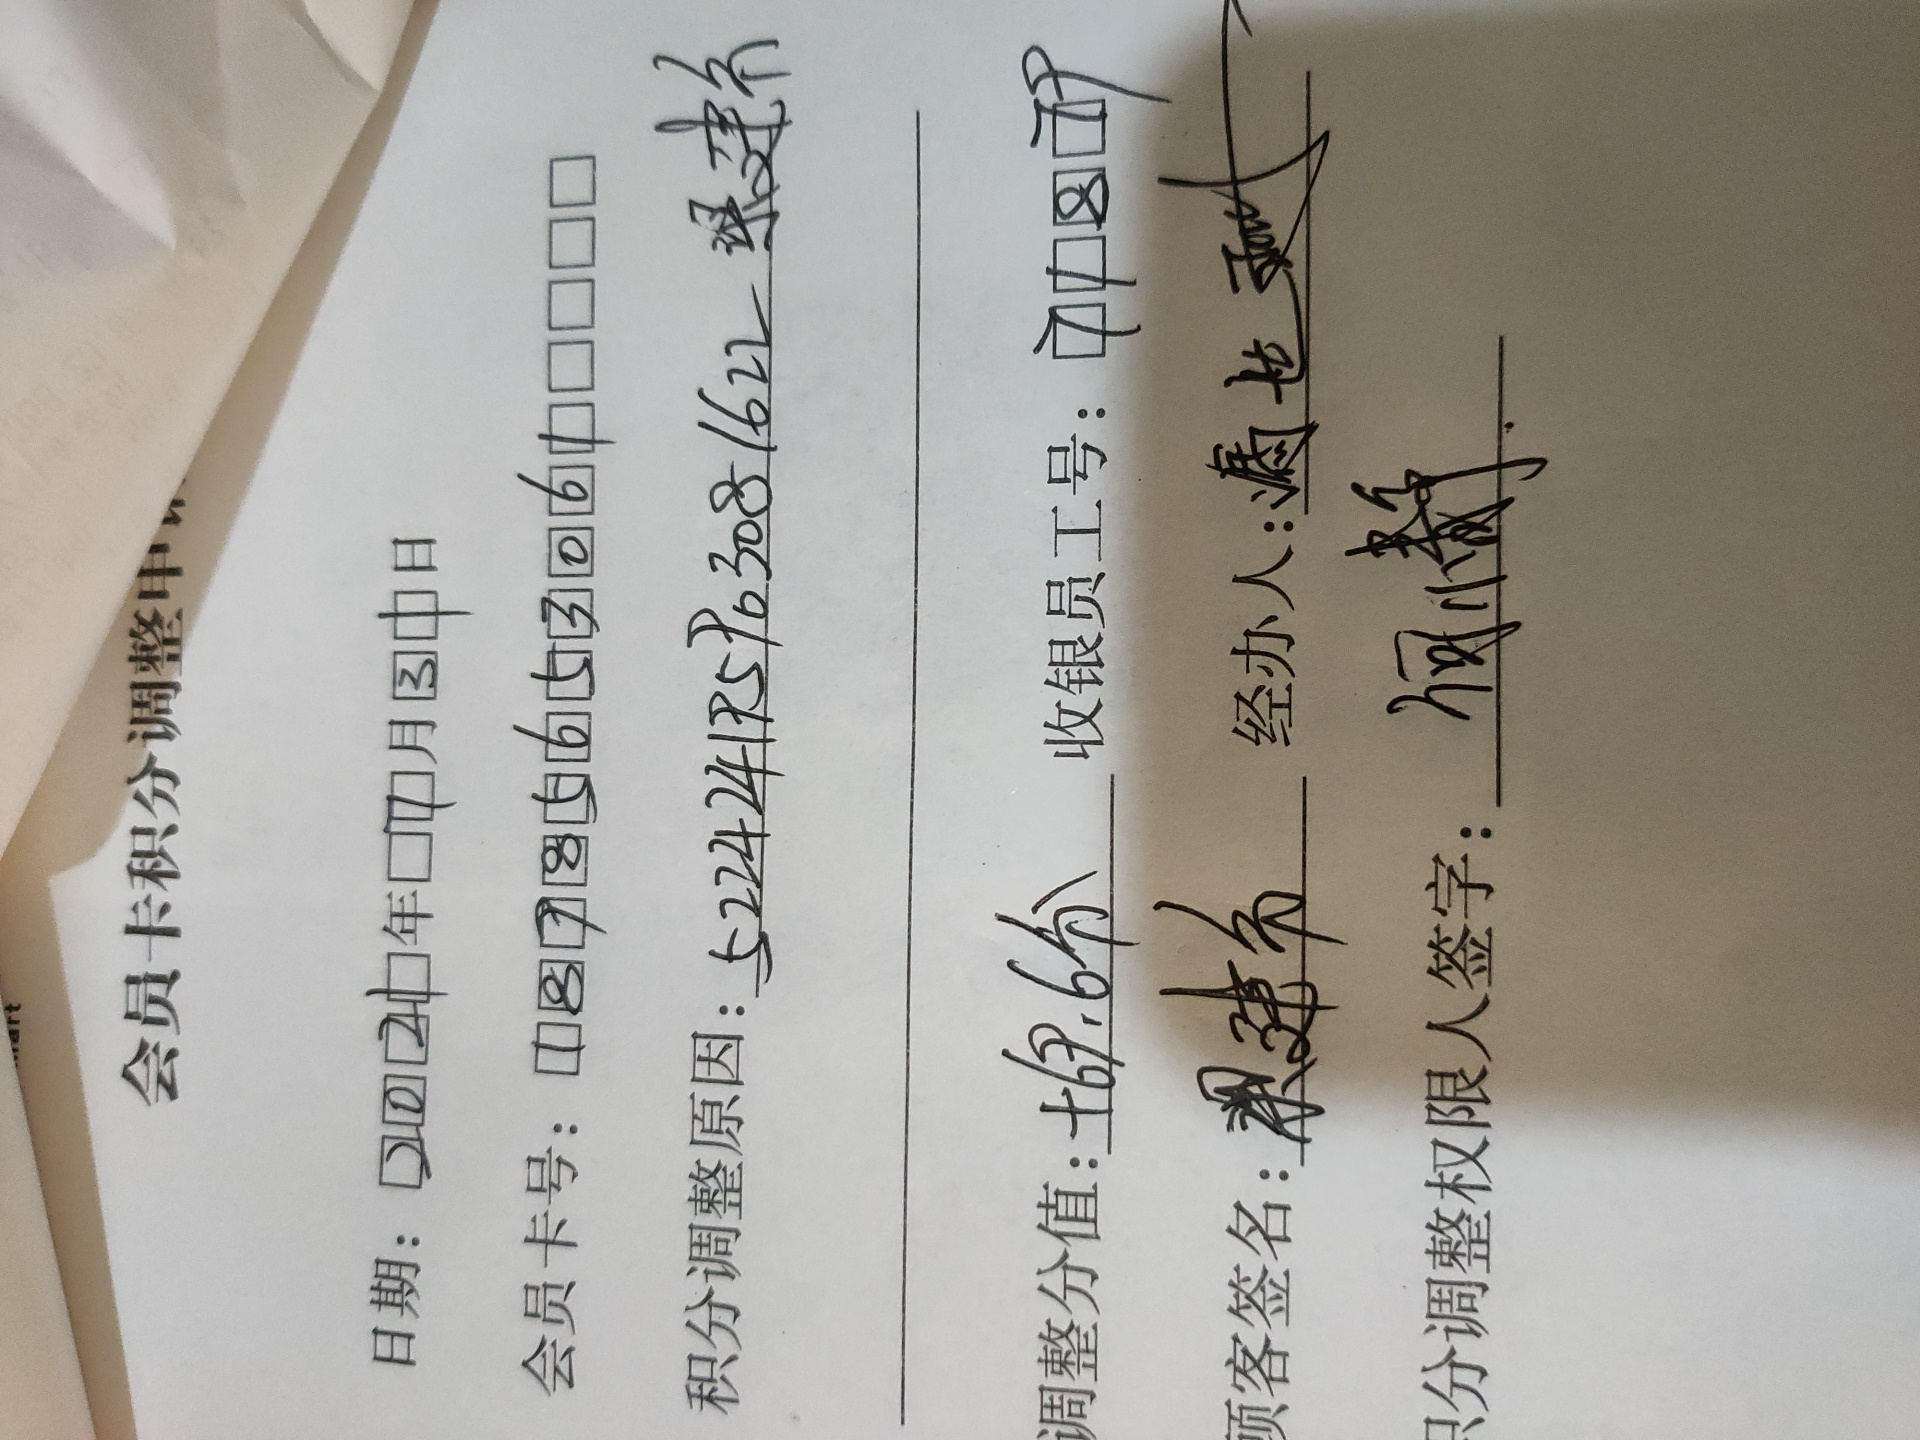 mart
会员卡积分调整申
日期：2024年7月31日
会员卡号：18785653061
积分调整原因：522424195963081622
调整分值：+69.6分 收银员工号：71879
顾客签名： 经办人：
积分调整权限人签字：